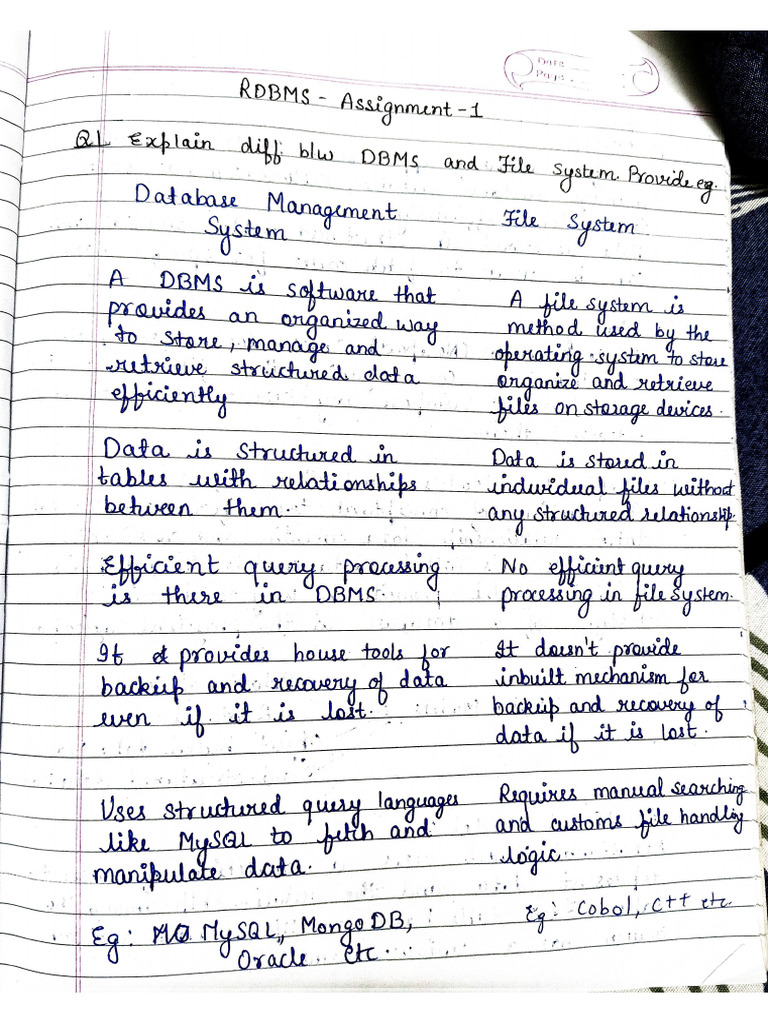 Date
Page
RDBMS - Assignment -1
Q1. Explain diff b/w DBMS and File System. Provide eg.
Database Management
System
A DBMS is software that
provides an organized way
to store, manage and
retrieve structured data
efficiently
Data is structured in
tables with relationships
between them.
Efficient query processing
is there in DBMS.
It provides house tools for
backup and recovery of data
even if it is lost.
Uses structured query languages
like MySQL to fetch and
manipulate data.
Eg: MySQL, MongoDB,
Oracle etc.
File System
A file system is
method used by the
operating system to store
organize and retrieve
files on storage devices.
Data is stored in
individual files without
any structured relationship.
No efficient query
processing in file system.
It doesn't provide
inbuilt mechanism for
backup and recovery of
data if it is lost.
Requires manual searching
and customs file handling
logic.
Eg: Cobol, C++ etc.